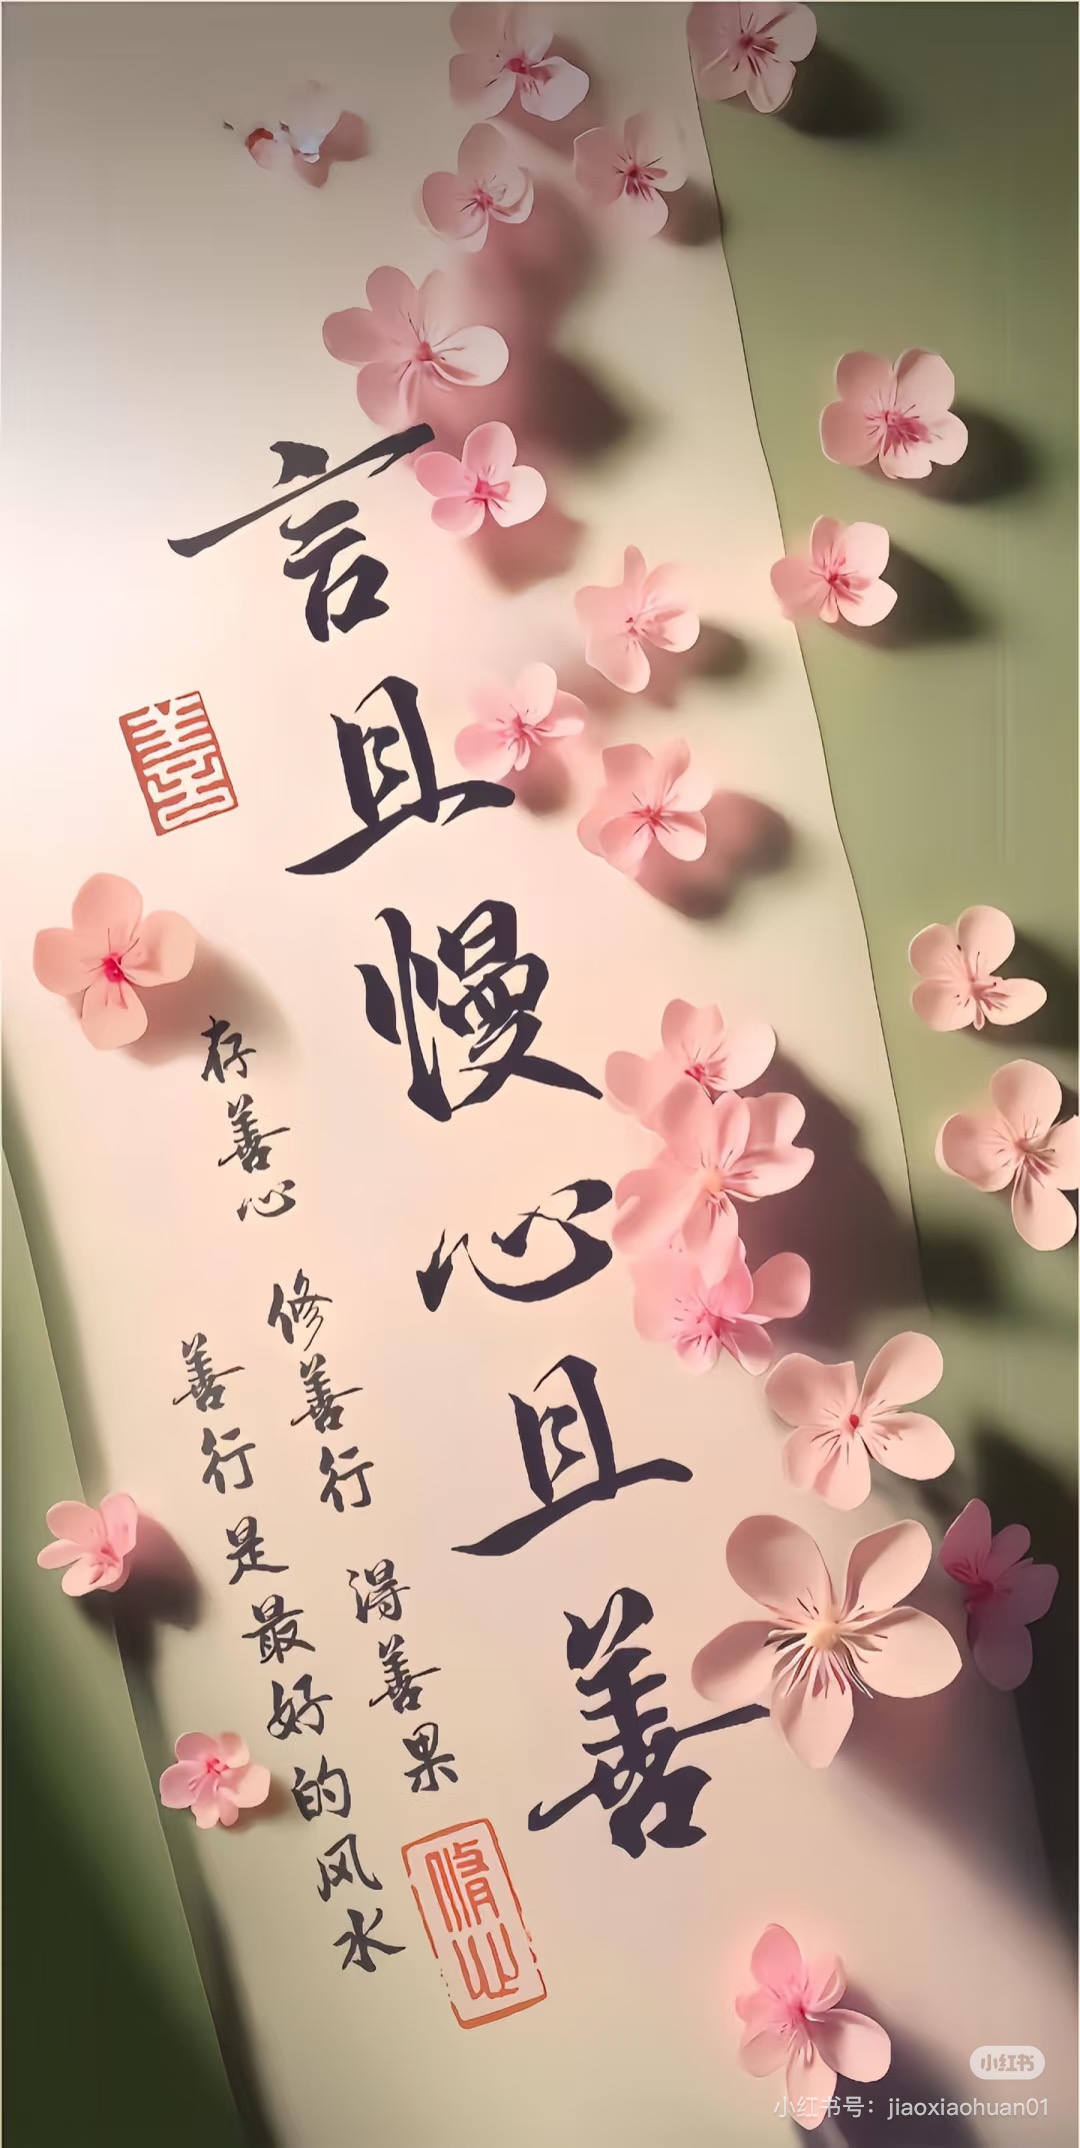 言且慢心且善
善
存善心 修善行 得善果
善行是最好的风水
修心
小红书
小红书号：jiaoxiaohuan01